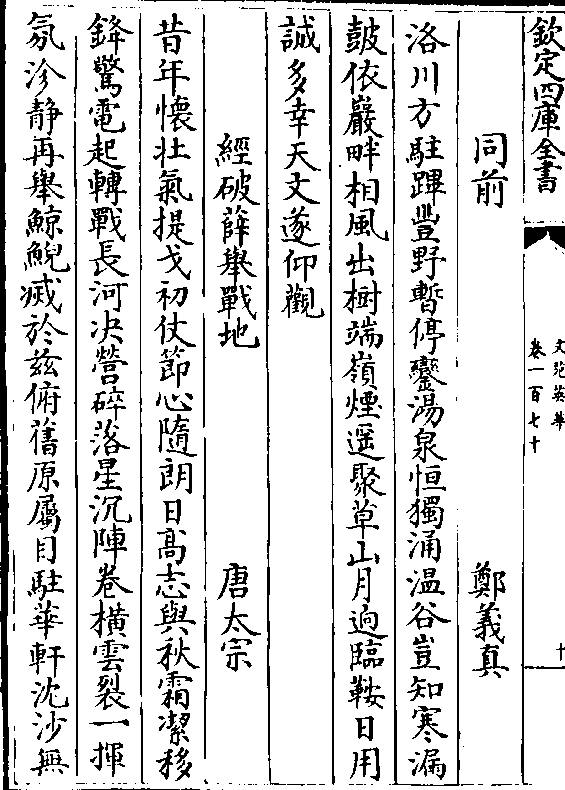 欽定四庫全書
文苑英華
卷一百七十
十
同前 鄭義真
洛川方駐蹕豐野暫停鑾湯泉恒獨涌温谷豈知寒漏
鼓依巖畔相風出樹端嶺煙遥聚草山月逈臨鞍日用
誠多幸天文遂仰觀
經破薛舉戰地 唐太宗
昔年懷壮氣提戈初仗節心隨朗日髙志與秋霜潔移
鋒驚電起轉戰長河决營碎落星沉陣卷横雲裂一揮
氛沴静再舉鯨鯢滅於兹俯舊原屬目駐華軒沈沙無